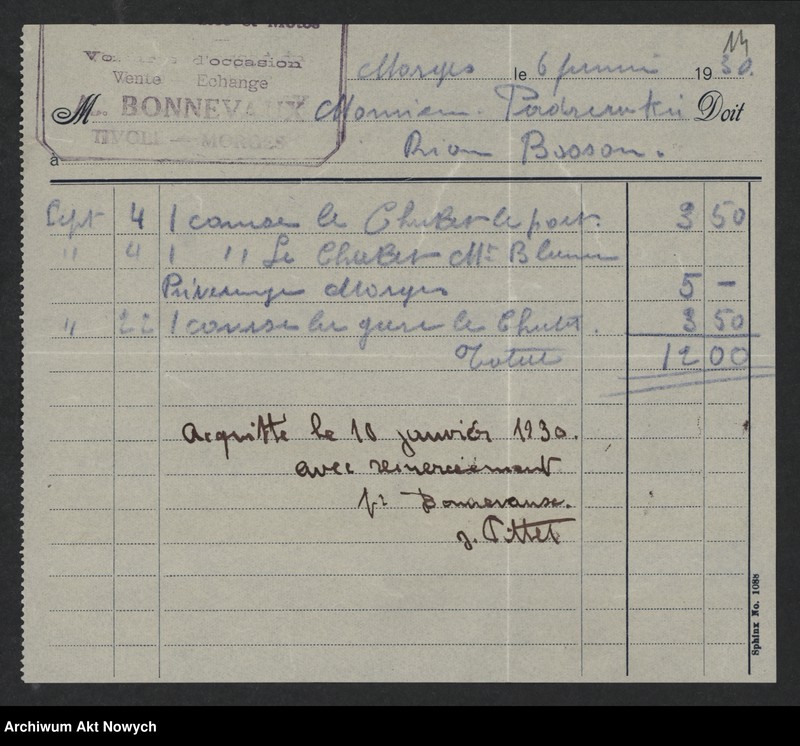 et Motos
d'occasion
Vente Echange
L. BONNEVAUX
TIVOLI — MORGES
14
Morges le 6 1930.
M Monsieur Paderewski Doit
à Rion Bosson.
Sept 4 1 course le Chalet le port. 3 50
" 4 1 " Le Chalet Mr Blum
Préverenges Morges 5 -
" 22 1 course la gare le Chalet. 3 50
Total 12 00
Acquitté le 10 janvier 1930.
avec remerciement
pr Bonnevaux.
J. Pittet
Sphinx No. 1088
Archiwum Akt Nowych